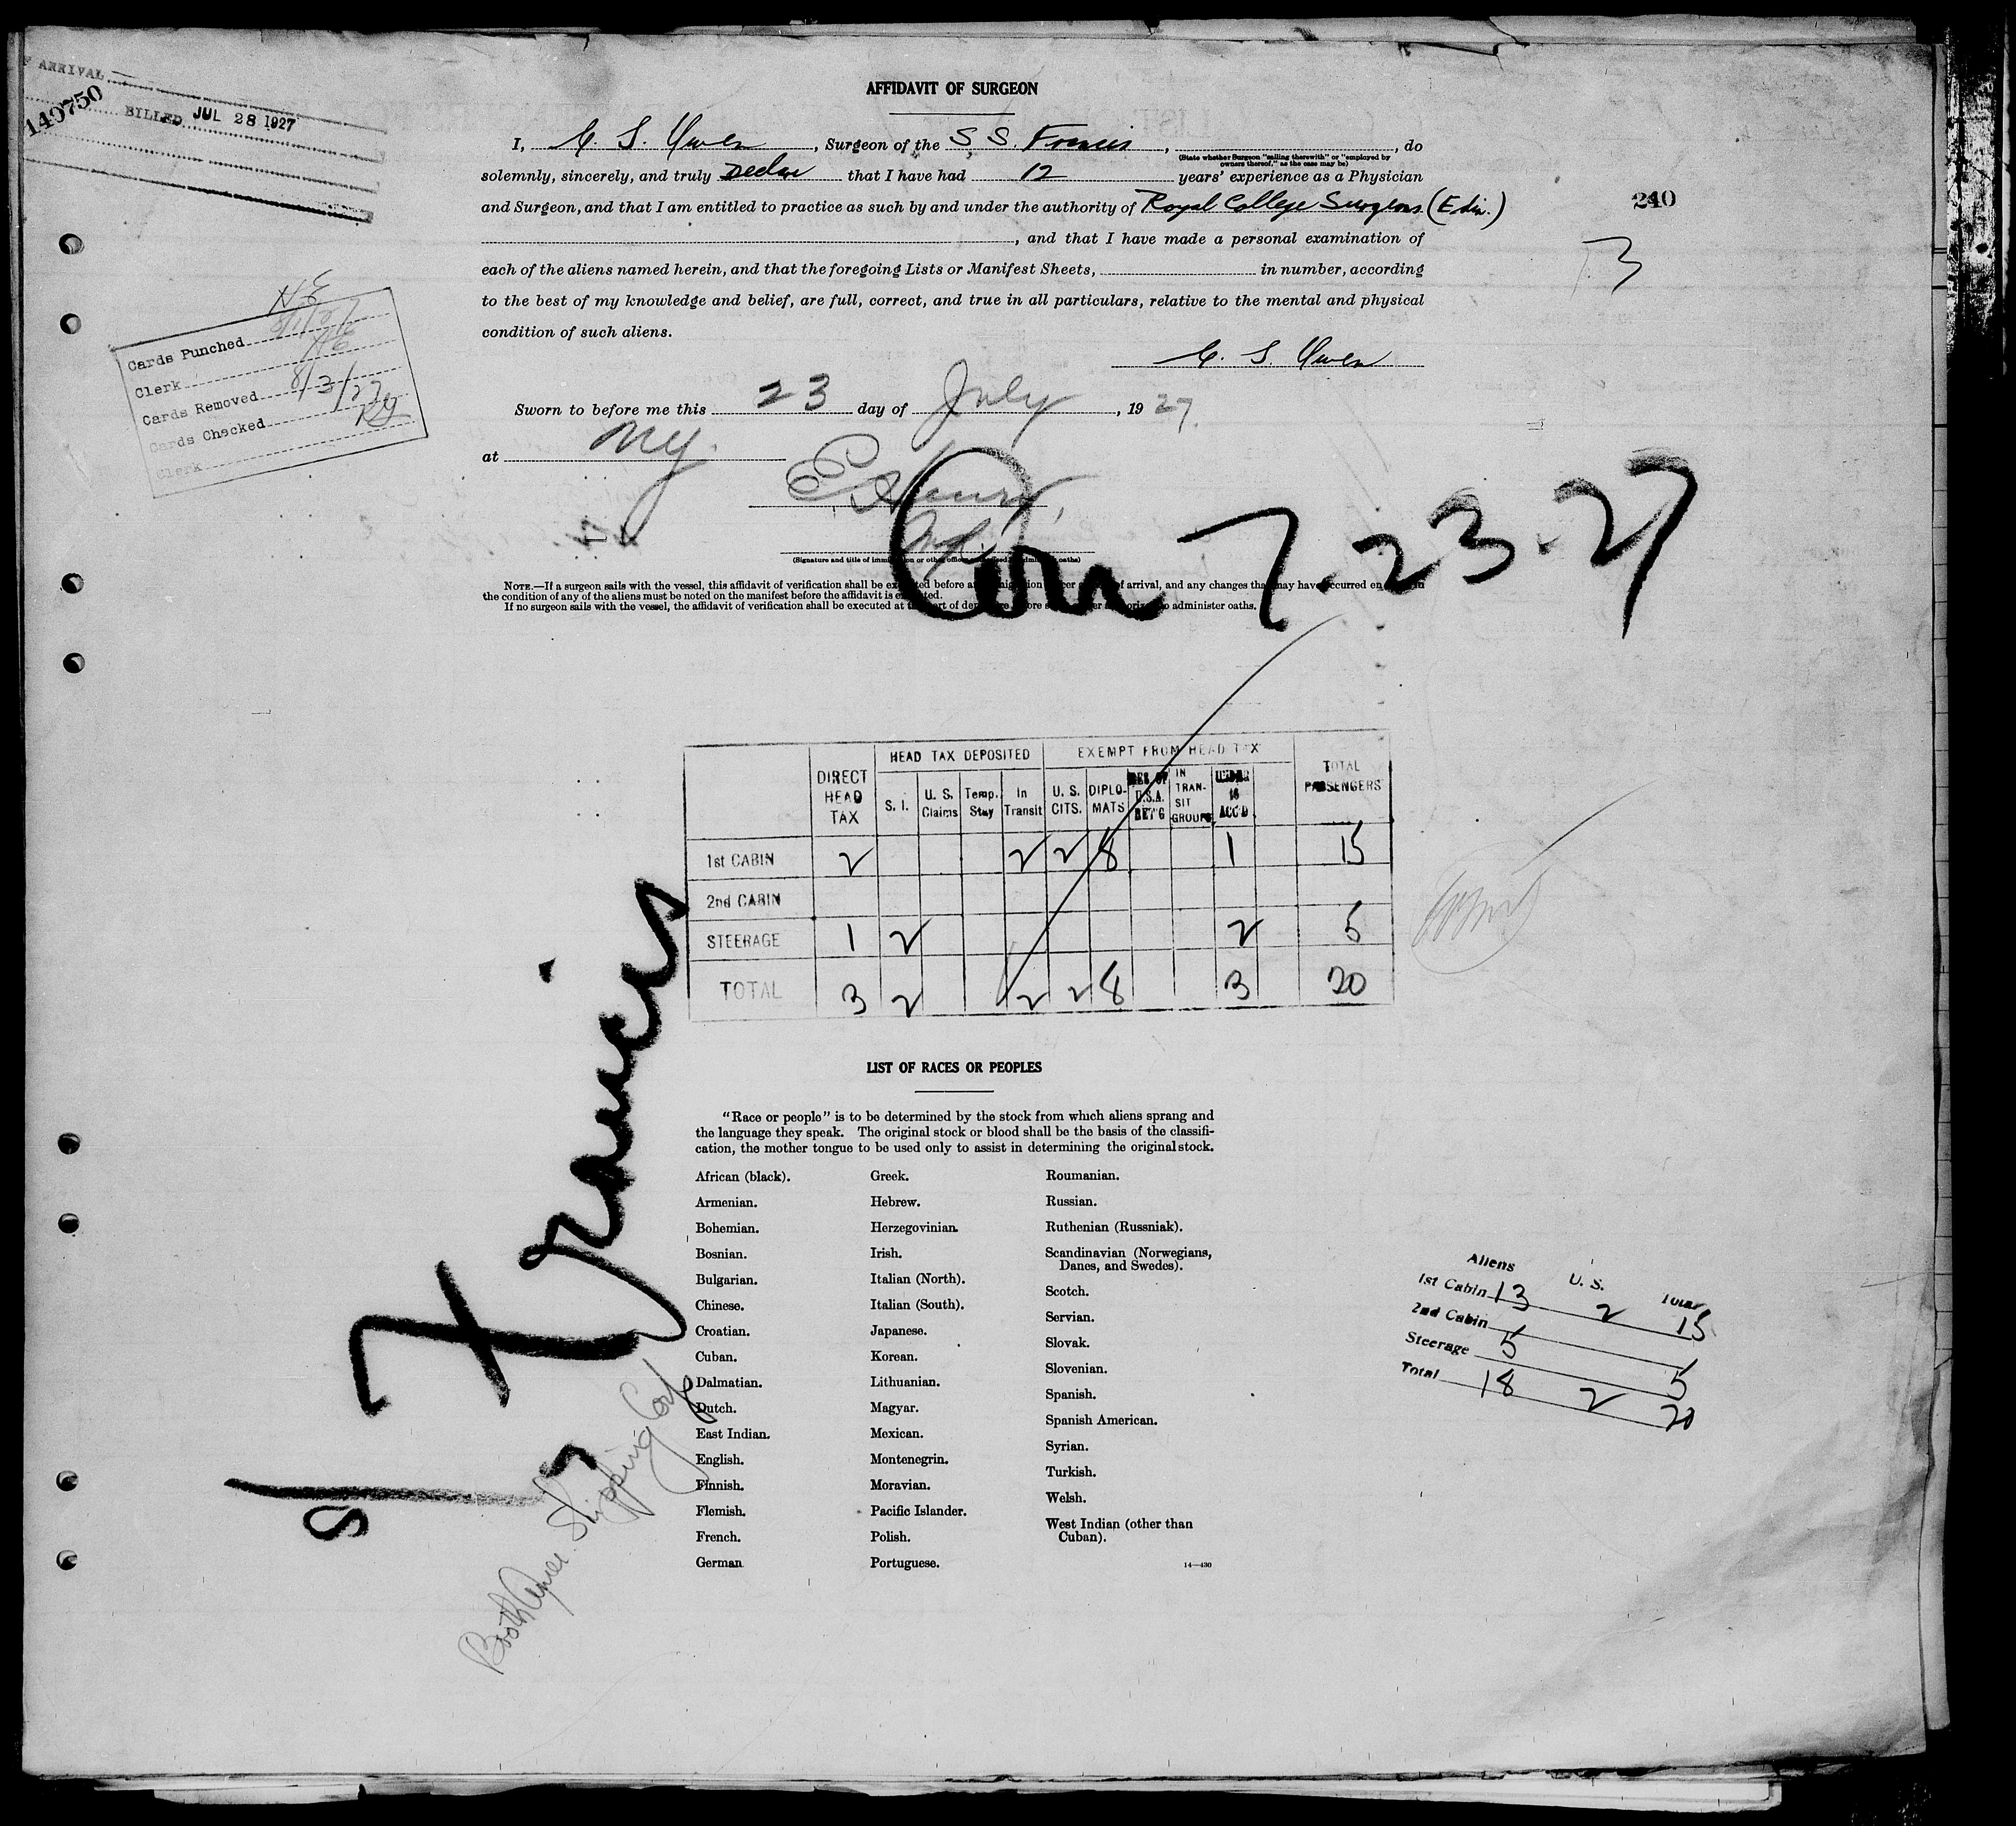 F ARRIVAL
149750
BILLED JUL 28 1927
AFFIDAVIT OF SURGEON
I, S. Owen, Surgeon of the S S. Francis, , do
(State whether Surgeon "sailing therewith" or "employed by
owners thereof," as the case may be)
solemnly, sincerely, and truly Declare that I have had 12 years' experience as a Physician
and Surgeon, and that I am entitled to practice as such by and under the authority of Royal College Surgeons (Edin.)
, and that I have made a personal examination of
each of the aliens named herein, and that the foregoing Lists or Manifest Sheets, in number, according
to the best of my knowledge and belief, are full, correct, and true in all particulars, relative to the mental and physical
condition of such aliens.
S. Owen
240
3
Cards Punched
Clerk
Cards Removed 8/3/27
Cards Checked
Clerk
Sworn to before me this 23 day of July, 1927.
at NY.
7.23.27
(Signature and title of immigration or other officer authorized to administer oaths)
NOTE.—If a surgeon sails with the vessel, this affidavit of verification shall be executed before an immigration officer of arrival, and any changes that may have occurred en
the condition of any of the aliens must be noted on the manifest before the affidavit is executed.
If no surgeon sails with the vessel, the affidavit of verification shall be executed at the port of departure before officer authorized to administer oaths.
HEAD TAX DEPOSITED EXEMPT FROM HEAD TAX
DIRECT HEAD TAX S. I. U. S. Claims Temp. Stay In Transit U. S. CITS. DIPLO- MATS RES. OF U.S.A. RET'G IN TRAN- SIT GROUPS UNDER 16 ACC'D TOTAL PASSENGERS
1st CABIN 2 2 2 8 1 15
2nd CABIN
STEERAGE 1 2 2 5
TOTAL 3 2 2 2 8 3 20
S/S Francis
Booth Amer. Shipping Corp
LIST OF RACES OR PEOPLES
"Race or people" is to be determined by the stock from which aliens sprang and
the language they speak. The original stock or blood shall be the basis of the classifi-
cation, the mother tongue to be used only to assist in determining the original stock.
African (black).
Armenian.
Bohemian.
Bosnian.
Bulgarian.
Chinese.
Croatian.
Cuban.
Dalmatian.
Dutch.
East Indian.
English.
Finnish.
Flemish.
French.
German
Greek.
Hebrew.
Herzegovinian.
Irish.
Italian (North).
Italian (South).
Japanese.
Korean.
Lithuanian.
Magyar.
Mexican.
Montenegrin.
Moravian.
Pacific Islander.
Polish.
Portuguese.
Roumanian.
Russian.
Ruthenian (Russniak).
Scandinavian (Norwegians,
Danes, and Swedes).
Scotch.
Servian.
Slovak.
Slovenian.
Spanish.
Spanish American.
Syrian.
Turkish.
Welsh.
West Indian (other than
Cuban).
14—430
Aliens U. S. Total
1st Cabin 13 2 15
2nd Cabin
Steerage 5 5
Total 18 2 20